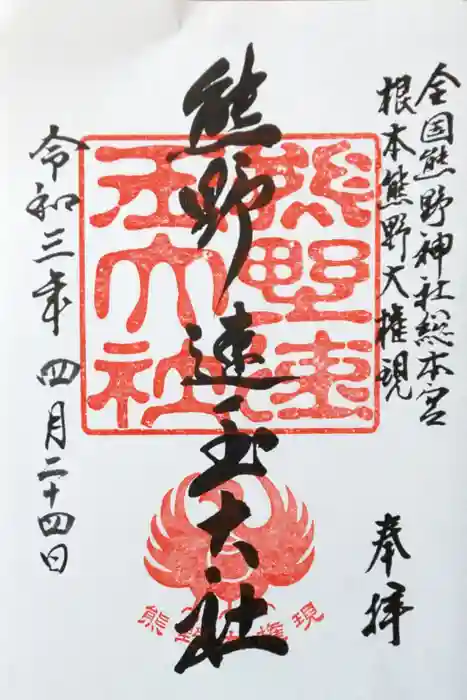 全国熊野神社総本宮
根本熊野大権現
奉拝
熊野速玉大社
令和三年四月二十四日
熊野速玉大社
熊野権現